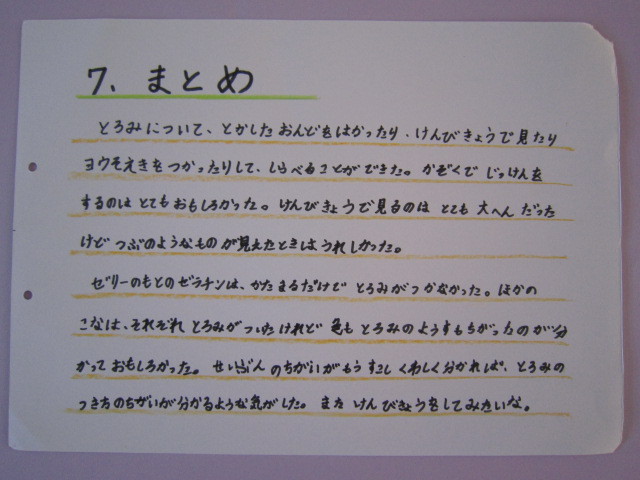 7. まとめ
とろみについて、とかしたおんどをはかったり、けんびきょうで見たり
ヨウそえきをつかったりして、しらべることができた。かぞくでじっけんを
するのはとてもおもしろかった。けんびきょうで見るのはとても大へんだった
けどつぶのようなものが見えたときはうれしかった。
ゼリーのもとのゼラチンは、かたまるだけでとろみがつかなかった。ほかの
こなは、それぞれとろみがついたけれど色もとろみのようすもちがったのが分
かっておもしろかった。せいぶんのちがいがもうすこしくわしく分かれば、とろみの
つき方のちがいが分かるような気がした。またけんびきょうをしてみたいな。